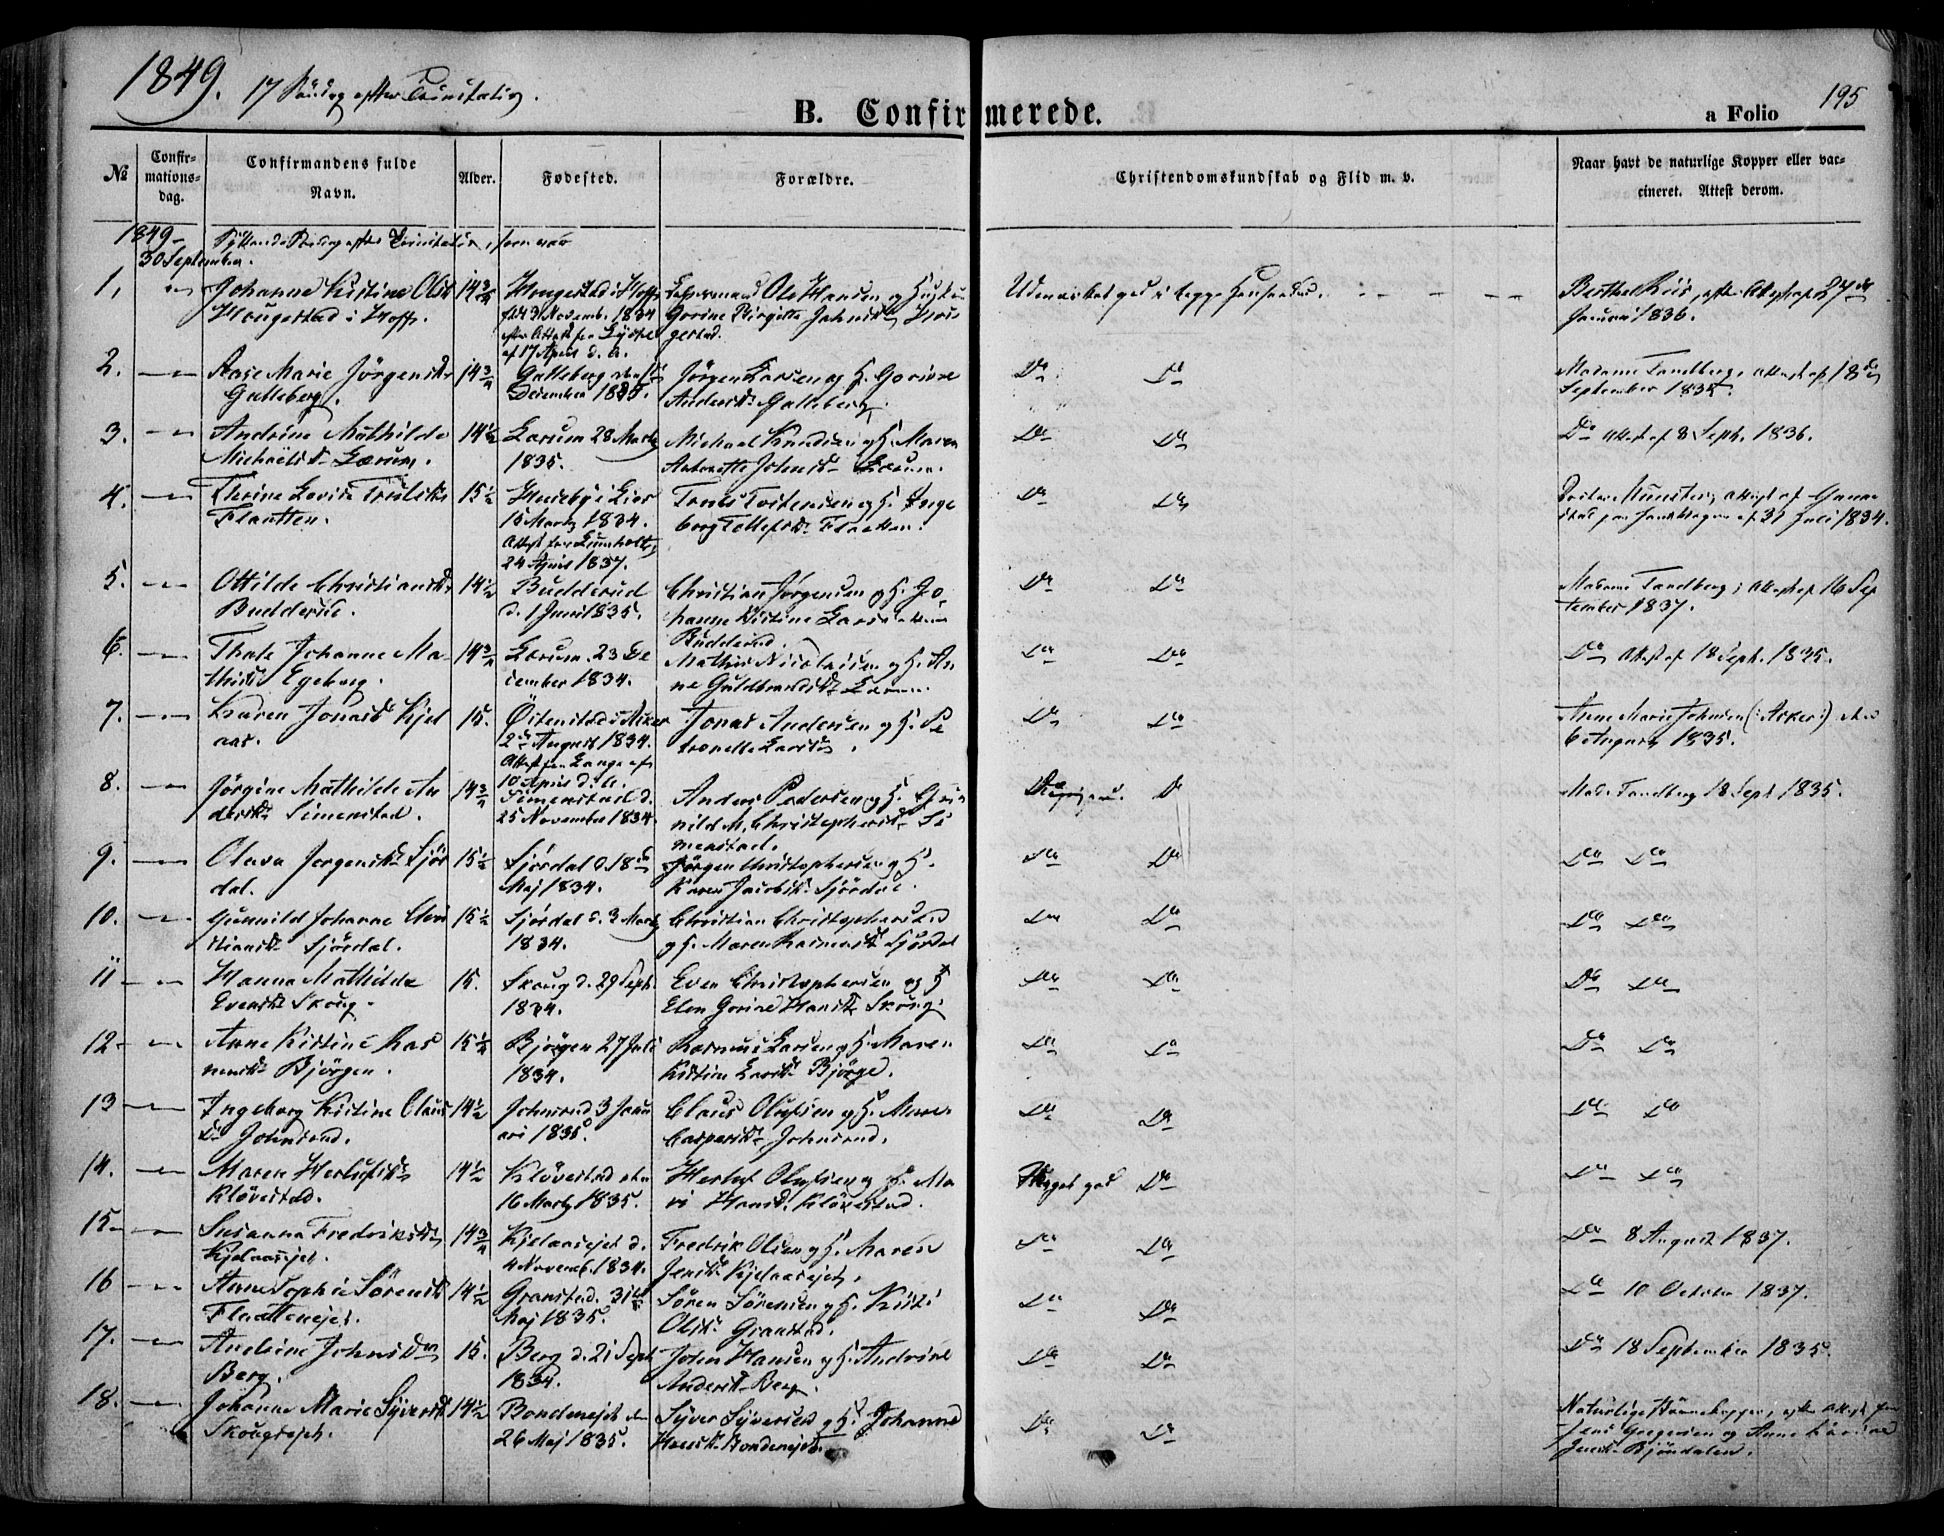 1849. 17 Søndag efter Trinitatis.
195
B. Confirmerede.
a Folio
№
Confir-
mations-
dag.
Confirmandens fulde
Navn.
Alder.
Fødested.
Forældre.
Christendomskundskab og Flid m. v.
Naar havt de naturlige Kopper eller vac-
cineret. Attest derom.
1849 - Søndag efter Trinitatis, som var
30 September.
1.
Johanne Kistine Olsd
Hougestad i Hoff.
14 3/4
Hougestad i Hoff
3 Novemb. 1834
efter Attest fra
af 17 April d. A.
Ole Hansen og Hustru
Gorine Birgitte Johnsd Hou-
gestad.
Udmærket god i begge Henseender.
Berthe Riis, efter Attest af 27de
Januari 1836.
2.
Aase Marie Jörgensd
Galleberg.
14 3/4
Galleberg
December
Jörgen Larsen og H. Gorine
Andersd Galleberg.
Do Do
Madame Tandberg, attest af 18de
September 1835.
3.
Andrine Mathilde
Michaelsd Lærum.
14 1/2
Lærum 28 Marts
1835.
Michael Knudsen og H. Maren
Antonette Johnsd Lærum.
Do Do
Do attest af 8 Septb. 1836.
4.
Thrine Lovise Trulsd
Flaatten.
15 1/2
Huseby i Lier
15 Marts 1834.
Attest fra
24 April 1837.
Truls Tostensen og H. Inge
borg Tollefsd Flaatten.
Do Do
Münster, attest af
af 31 Juli 1834.
5.
Ottilde Christiansd
Budderud.
14 1/2
Budderud
d. 1 Juni 1835.
Christian Jörgensen og H. Jo-
hanne Kistine Larsd
Budderud.
Do Do
Madame Tandberg, attest af 16 Sep
tember 1837.
6.
Thale Johanne Ma-
thisd Egeberg.
14 3/4
Lærum. 23 De
cember 1834.
Mathis Nicolaisen og H. An
ne Guldbrandsd Lærum.
Do Do
Do attest af 18 Septb. 1835.
7.
Karen Jonasd Kjel
aas.
15.
Östenstad i Asker
2den August 1834.
Attest fra Lange af
10 April d. A.
Jonas Andersen og H. Pe
tronelle Larsd.
Do Do
Anne Marie Johnsen (i Asker)
6 August 1835.
8.
Jörgine Mathilde An
dersd Simenstad.
14 3/4
Simenstad d.
25 November 1834.
Anders Pedersen og H. Gun
nild M. Christophersd Si
menstad.
Do
Mad. Tandberg 18 Sept 1835.
9.
Olava Jorgensd Sjör
dal.
15 1/2
Sjördal d. 18de
Maj 1834.
Jörgen Christophersen og H.
Karen Jacobsd Sjördal.
Do Do
Do Do
10.
Gunnild Johanne Chri
stiansd Sjördal.
15 1/2
Sjördal d. 3 Marts
1834.
Christian Christophersen
og H. Maren Rasmusd Sjördal
Do Do
Do Do
11
Hanna Mathilde
Evensd Skoug.
15.
Skoug d. 29 Septb.
1834.
Even Christophersen og H
Elen Gorine Hansd Skoug.
Do Do
Do Do
12.
Anne Kistine Ras
musd Björgen.
15 1/4
Bjorgen 27 Juli
1834.
Rasmus Larsen og H. Maren
Kistine Larsd Björge.
Do Do
Do Do
13
Ingeborg Kistine Claus
d. Johnsrud.
14 1/2
Johnsrud 3 Janu
ari 1835.
Claus Olufsen og H. Maren
Caspersd Johnsrud.
Do Do
Do Do
14.
Maren Herlufsd
Klövestad.
14 1/2
Klövestad den
16 Marts 1835.
Herluf Olufsen og H. Ma
ri Hansd Klövestad.
Meget god Do
Do Do
15.
Susanna Fredriksd
Kjelaasejet.
14 3/4
Kjelaasejet d.
4 Novemb. 1834.
Fredrik Olsen og H. Maren
Jensd Kjelaasejet.
Do Do
Do 8 August 1837.
16
Anne Sophie Sörensd
Flaattenejet.
14 1/2
Granstad. 31te
Maj 1835.
Sören Sörensen og H. Kisti
Olsd. Granstad.
Do Do
Do 10 October 1837.
17.
Andrine Johnsd
Berg.
15.
Berg d. 21 Septb
1834.
John Hansen og H. Andrine
Andersd Berg.
Do Do
Do 18 September 1835.
18.
Johanne Marie Syversd
Skougsejet.
14 1/2
Bondenejet den
26 Maj 1835.
Syver Syversen og H. Johanne
Hansd Bondenejet.
Do Do
Naturlige Börnekopper, efter Attest fra
Jens Gregersen og Anne Karine
Jensd Bjöndalen.